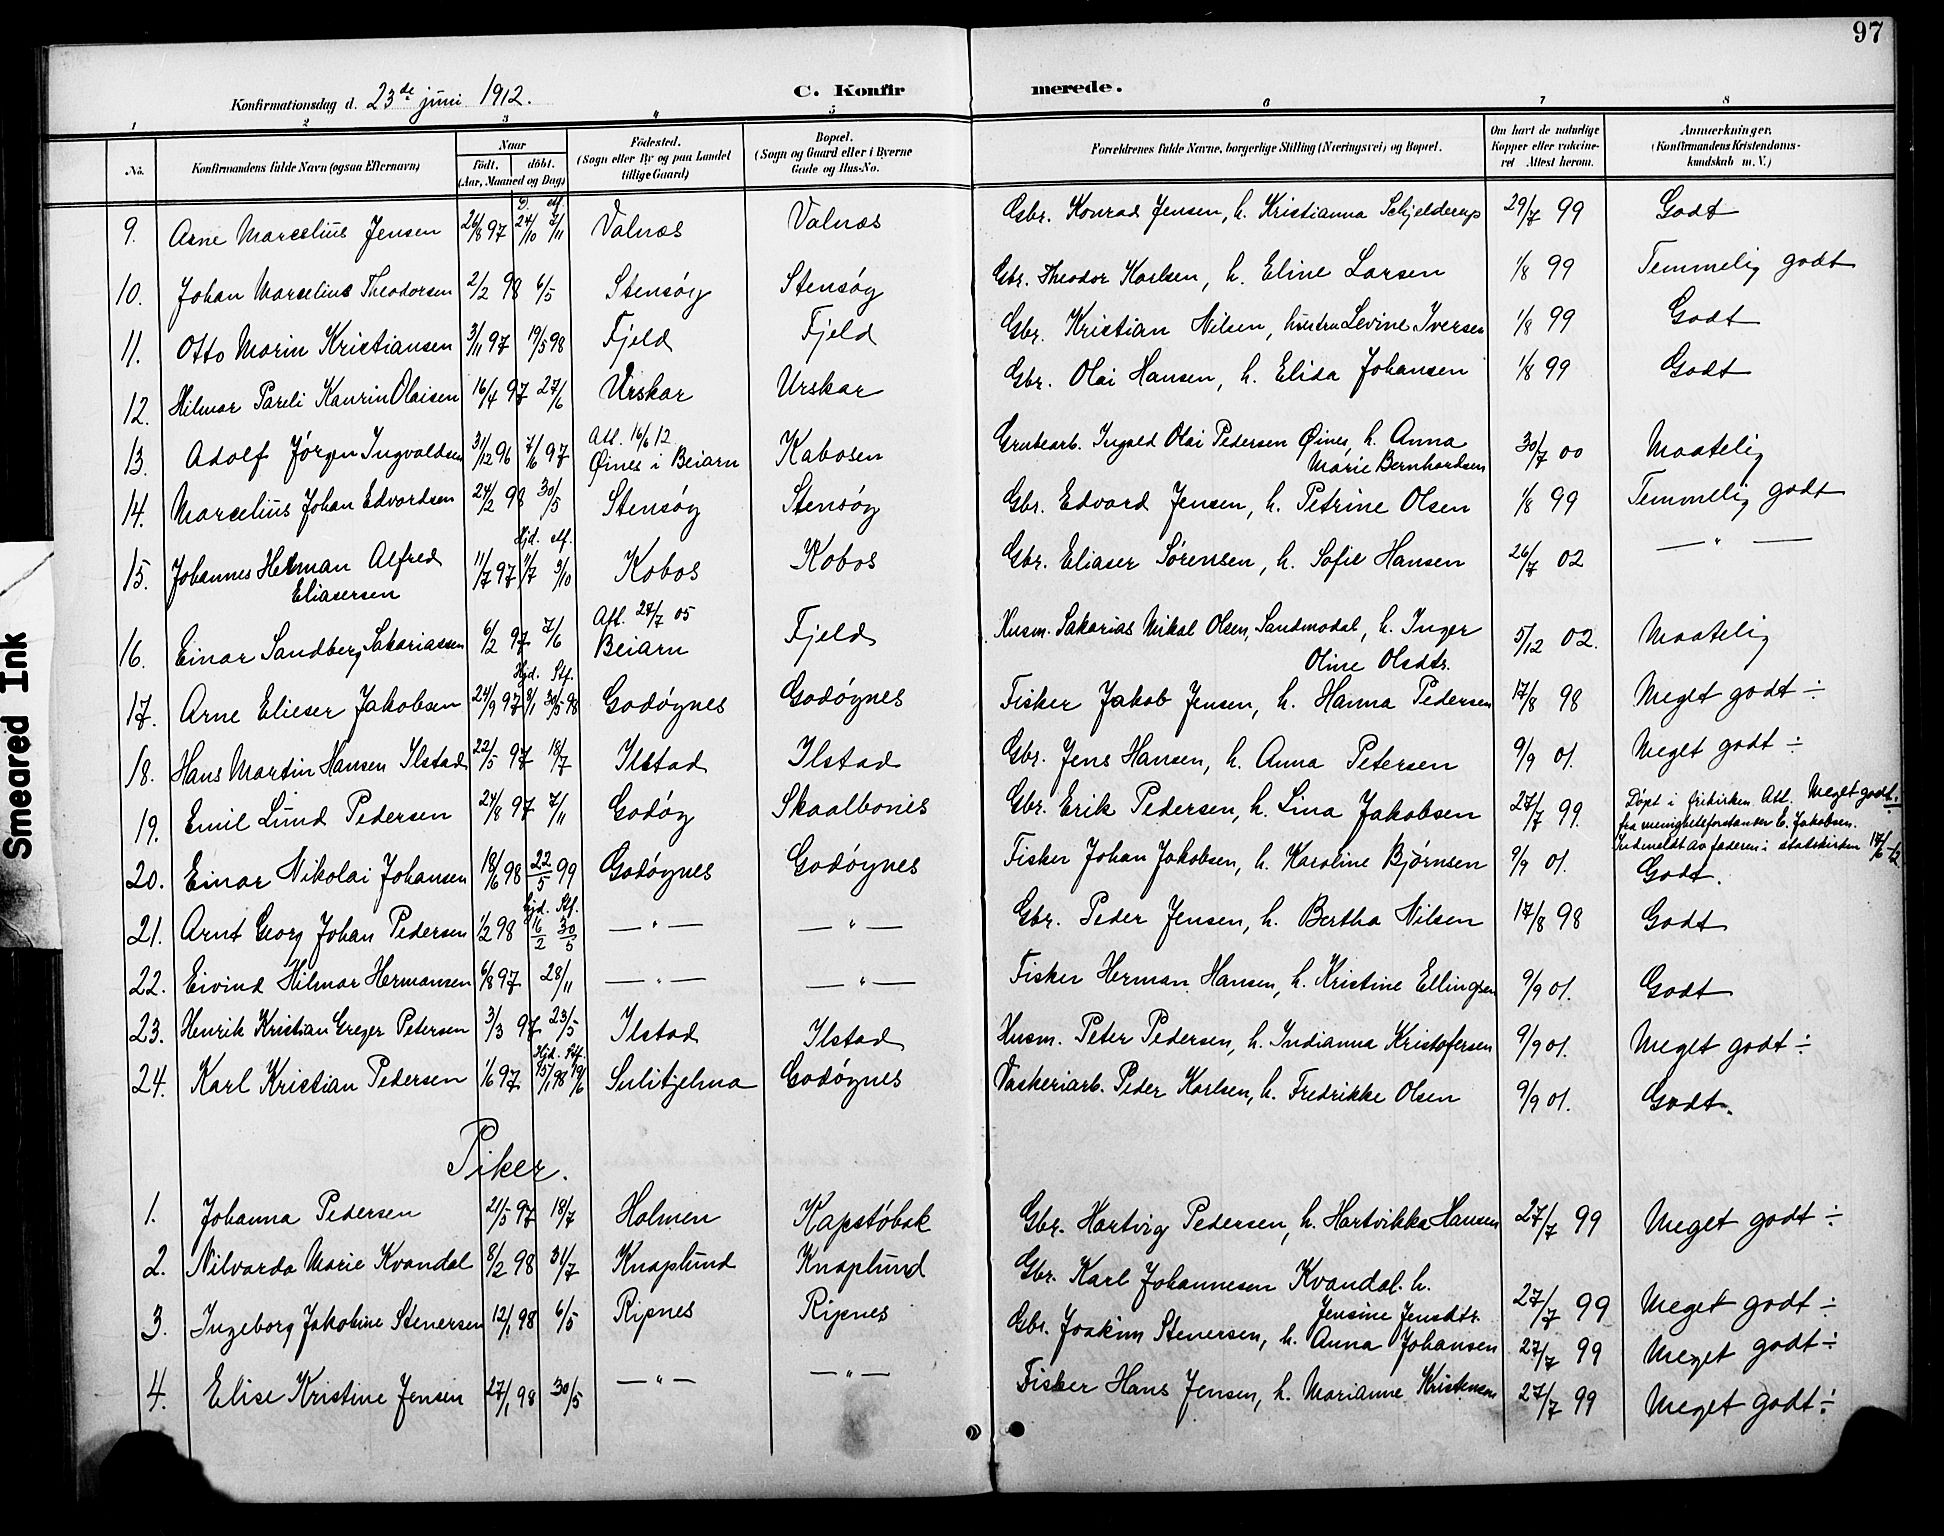 97
Konfirmationsdag d. 23de juni 1912. C. Konfir merede.
1 2 3 4 5 6 7 8
No. Konfirmandens fulde Navn (ogsaa Efternavn) Naar født, døbt. (Aar, Maaned og Dag) Födested. (Sogn eller By og paa Landet tillige Gaard) Bopæl. (Sogn og Gaard eller i Byerne Gade og Hus-No. Forældrenes fulde Navne, borgerlige Stilling (Næringsvei) og Bopæl. Om havt de naturlige Kopper eller vakcineret Attest herom. Anmærkninger. (Konfirmandens Kristendomskundskab m. V.)
9. Arne Marcelius Jensen 26/8 97 D. 24/10 st. 7/11 Valnæs Valnæs Gbr. Konrad Jensen, h. Kristianna Schjelderup 29/7 99 Godt
10. Johan Marselius Theodorsen 2/2 98 6/5 Stensøy Stensøy Gbr. Theodor Karlsen, h. Eline Larsen 1/8 99 Temmelig godt
11. Otto Marin Kristiansen 3/11 97 19/5 98 Fjeld Fjeld Gbr. Kristian Nilsen, hustru Levine Iversen 1/8 99 Godt
12. Hilmar Pareli Kaurin Olaisen 16/4 97 27/6 Urskar Urskar Gbr. Olai Hansen, h. Elida Johansen 1/8 99 Godt
13. Adolf Jørgen Ingvaldsen 31/12 96 7/6 97 Att. 16/6 12. Øines i Beiarn Kabosen Grubearb. Ingvald Olai Pedersen Øines, h. Anna Marie Bernhardsen 30/7 00 Maatelig
14. Marcelius Johan Edvardsen 24/2 98 30/5 Stensøy Stensøy Gbr. Edvard Jensen, h. Petrine Olsen 1/8 99 Temmelig godt
15. Johannes Helman Alfred Eliasersen 11/7 97 Hjd. 11/7 st. 3/10 Kobos Kobos Gbr. Eliaser Sørensen, h. Sofie Hansen 26/7 02 — " —
16. Einar Sandberg Sakariassen 6/2 97 7/6 Att. 27/7 05 Beiarn Fjeld Husm. Sakarias Mikal Olsen, Sandmodal, h. Inger Oline Olsdtr. 5/12 02. Maatelig
17. Arne Elieser Jakobsen 24/9 97 Hjd. 8/1 Stf. 30/5 98 Godøynes Godøynes Fisker Jakob Jensen, h. Hanna Pedersen 17/8 98 Meget godt ÷
18. Hans Martin Hansen Ilstad 22/5 97 18/7 Ilstad Ilstad Gbr. Jens Hansen, h. Anna Petersen 9/9 01. Meget godt ÷
19. Emil Lund Pedersen 24/8 97 7/11 Godøy Skaalbones Gbr. Erik Pedersen, h. Lina Jakobsen 27/7 99. Døpt i frikirken. Att. Meget godt ÷
fra menighetsforstander E. Jakobsen.
Indmeldt av faderen i statskirken 17/6 12
20. Einar Nikolai Johansen 18/6 98 22/5 99 Godøynes Godøynes Fisker Johan Jakobsen, h. Karoline Bjørnsen 9/9 01. Godt.
21. Arnt Georg Johan Pedersen 1/2 98 Hjd. 16/2 Stf. 30/5 — " — — " — Gbr. Peder Jensen, h. Bertha Nilsen 17/8 98 Godt
22. Eivind Hilmar Hermansen 6/8 97 28/11 — " — — " — Fisker Herman Hansen, h. Kristine Ellingsen 9/9 01. Godt
23. Henrik Kristian Greger Petersen 3/3 97 23/5 Ilstad Ilstad Husm. Peter Pedersen, h. Indianna Kristofersen 9/9 01. Meget godt ÷
24. Karl Kristian Pedersen 1/6 97 Hjd. 15/1 98 Stf. 19/6 Sulitjelma Godøynes Vaskeriarb. Peder Karlsen, h. Fredrikke Olsen 9/9 01. Godt.
Piker.
1. Johanna Pedersen 21/5 97 18/7 Holmen Kapstøbak Gbr. Hartvig Pedersen, h. Hartvikka Hansen 27/7 99 Meget godt ÷
2. Nilvarda Marie Kvandal 8/2 98 31/7 Knaplund Knaplund Gbr. Karl Johannesen Kvandal. h. Jensine Jensdtr. 27/7 99 Meget godt ÷
3. Ingeborg Jakobine Stenersen 12/1 98 6/5 Ripnes Ripnes Gbr. Joakim Stenersen, h. Anna Johansen 27/7 99 Meget godt ÷
4. Elise Kristine Jensen 27/1 98 30/5 — " — — " — Fisker Hans Jensen, h. Marianne Kristensen 27/7 99 Meget godt ÷
Smeared Ink